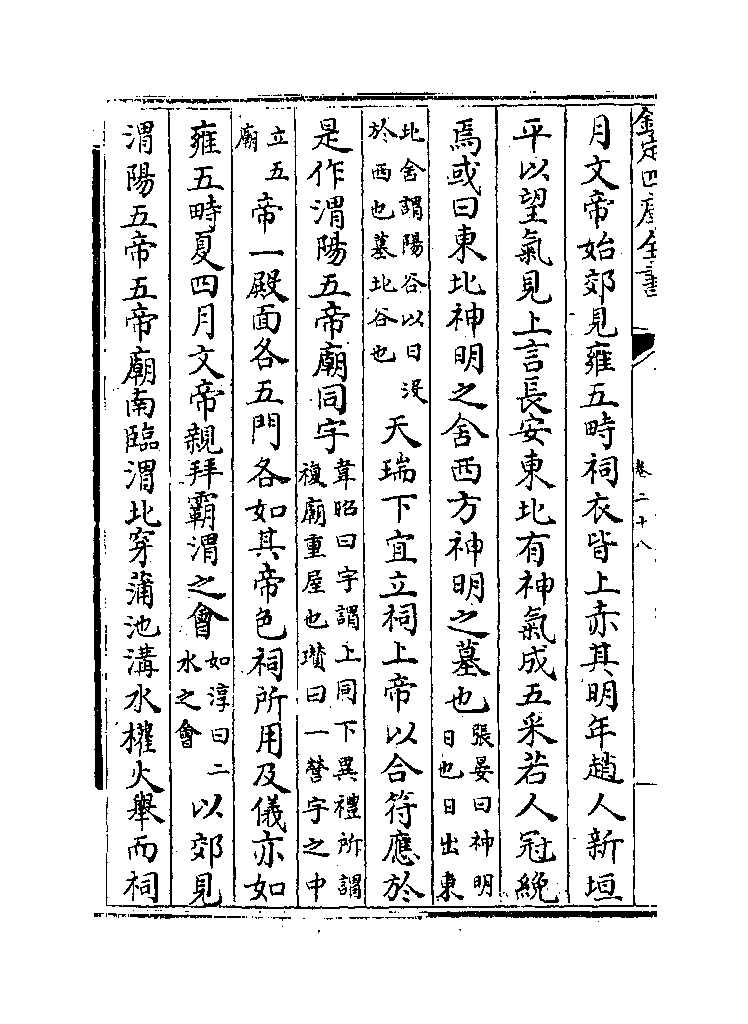 欽定四庫全書
卷二十八
月文帝始郊見雍五畤祠衣皆上赤其明年趙人新垣
平以望氣見上言長安東北有神氣成五采若人冠絻
焉或曰東北神明之舍西方神明之墓也張晏曰神明日也日出東
北舍謂陽谷以日沒於西也墓北谷也天瑞下宜立祠上帝以合符應於
是作渭陽五帝廟同宇韋昭曰宇謂上同下異禮所謂複廟重屋也瓚曰一營宇之中
立五廟帝一殿面各五門各如其帝色祠所用及儀亦如
雍五畤夏四月文帝親拜霸渭之會如淳曰二水之會以郊見
渭陽五帝五帝廟南臨渭北穿蒲池溝水權火舉而祠